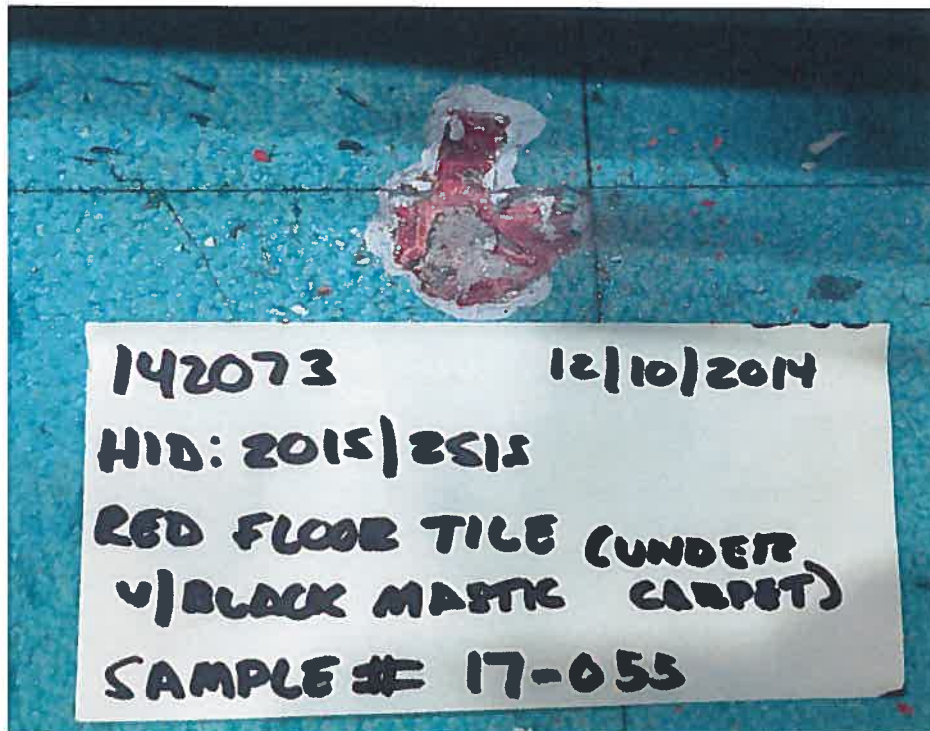 142073 12/10/2014
HID: 2015/2515
RED FLOOR TILE (UNDER
W/BLACK MASTIC CARPET)
SAMPLE # 17-055